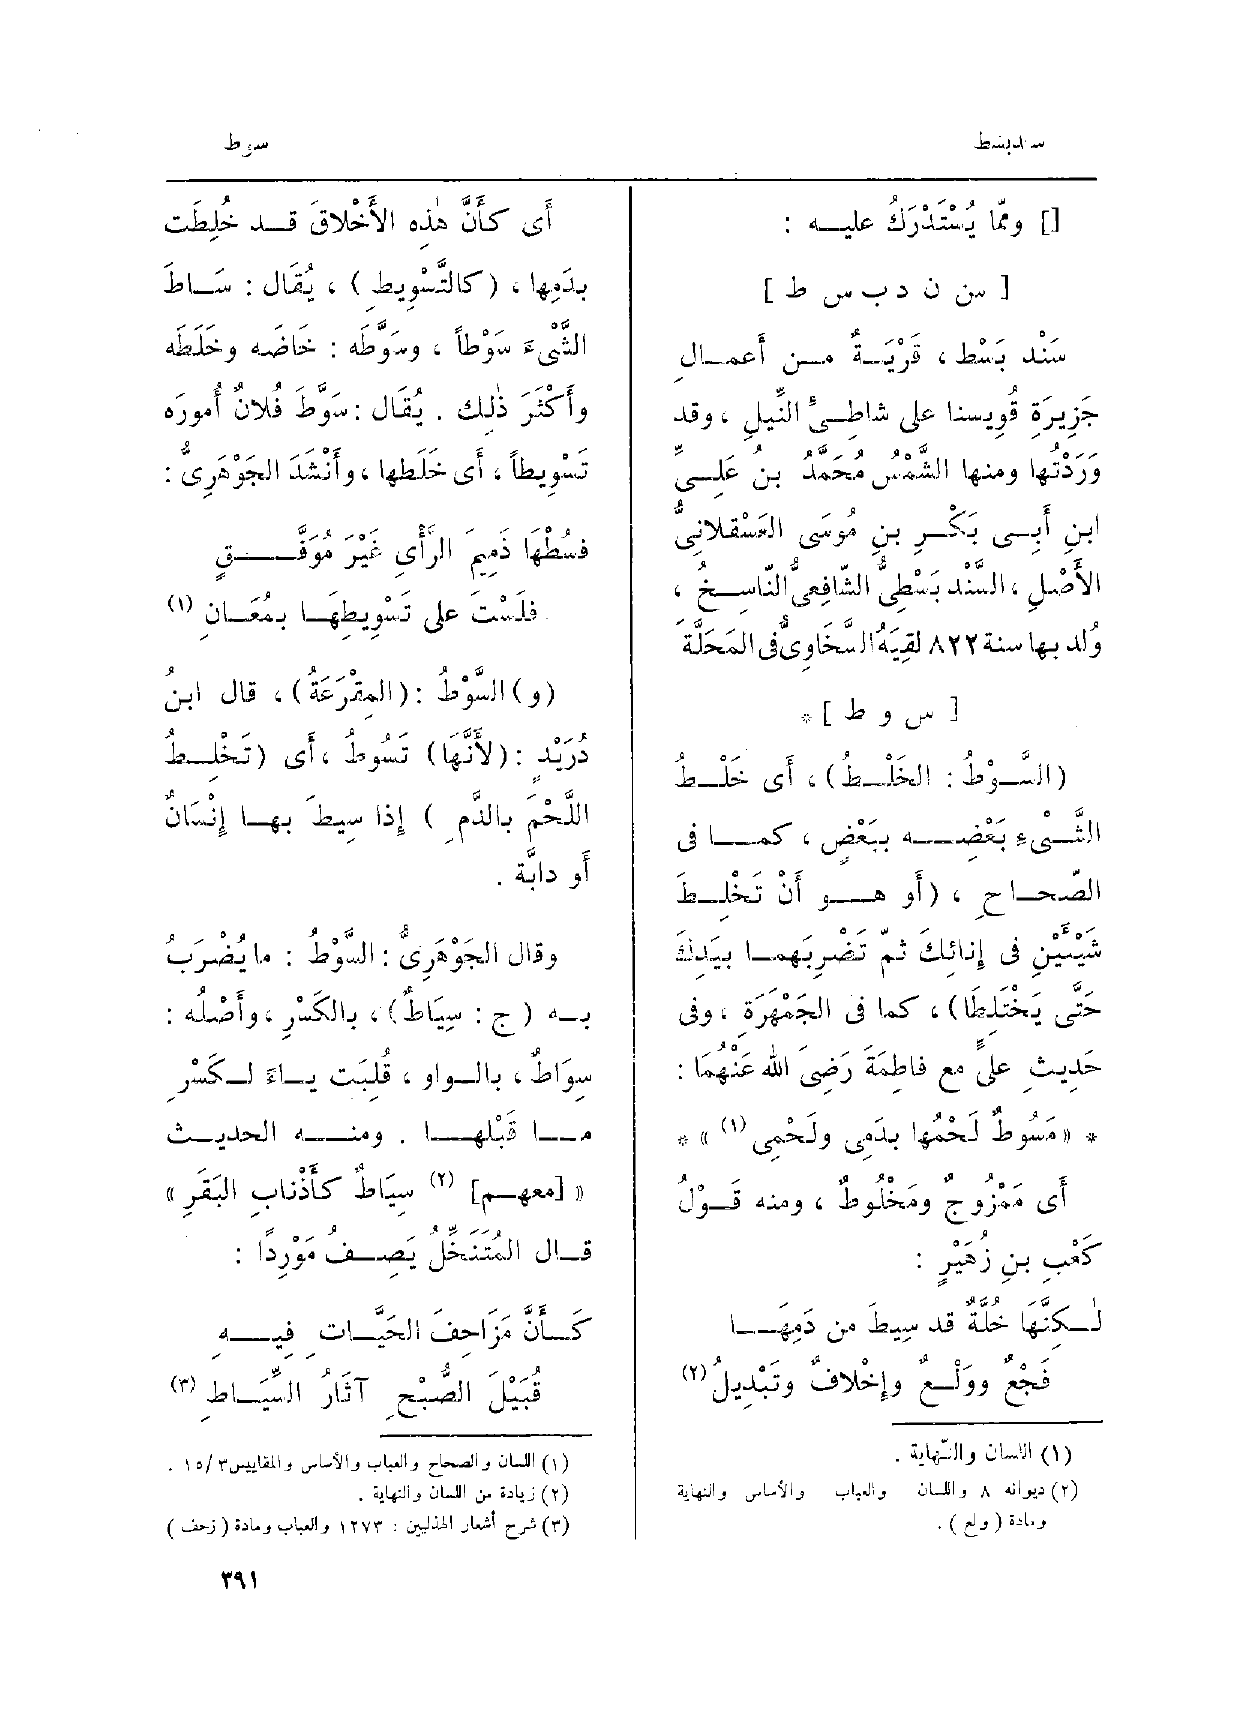 سندبسط
سوط
[] وممّا يُسْتَدْرَكُ عليــه :
[ س ن د ب س ط ]
سَنْد بَسْط ، قَرْيَــةٌ مــن أَعمــالِ
جَزِيرَةِ قُويسنا على شاطــئِ النِّيلِ ، وقد
وَرَدْتُها ومنها الشَّمْسُ مُحَمَّدُ بنُ عَلِــىِّ
ابنِ أَبِــى بَكْــرِ بنِ مُوسَى العَسْقلانىُّ
الأَصْلِ ، السَّنْد بَسْطِىُّ الشّافِعىُّ النّاسِــخُ ،
وُلد بها سنة ٨٢٢ لقِيَهُ السَّخاوِىُّ فى المَحَلَّةَ
[ س و ط ] *
(السَّــوْطُ : الخَلْــطُ) ، أَى خَلْــطُ
الشَّــىءِ بَعْضِــــه ببَعْضٍ ، كمــا فى
الصّحــاحِ ، (أَو هــو أَنْ تَخْلِــطَ
شَيْئَيْنِ فى إِنائِكَ ثم تَضْرِبَهمــا بيَدِكَ
حَتَّى يَخْتَلِطَا) ، كما فى الجَمْهَرَةِ ، وفى
حَدِيثِ علىٍّ مع فاطِمَةَ رَضِىَ الله عَنْهُمَا :
* « مَسُوطٌ لَحْمُها بدَمِى ولَحْمِى (١) » *
أَى مَمْزُوجٌ ومَخْلُوطٌ ، ومنه قَــوْلُ
كَعْبِ بنِ زُهَيْرٍ :
لٰــكِنَّهَا خُلَّةٌ قد سِيطَ من دَمِهَــا
فَجْعٌ وولَــعٌ وإِخْلافٌ وتَبْدِيلُ (٢)
(١) اللسان والنّهاية .
(٢) ديوانه ٨ واللسان والعباب والأساس والنهاية
ومادة ( ولع ) .
أَى كَأَنَّ هٰذِه الأَخْلاقَ قــد خُلِطَت
بدَمِها ، (كالتَّسْوِيطِ ) ، يُقَال : سَــاطَ
الشَّىْءَ سَوْطاً ، وسَوَّطَه : خَاضَه وخَلَطَه
وأَكْثَرَ ذٰلِك . يُقَال : سَوَّطَ فُلانٌ أُمورَه
تَسْوِيطاً ، أَى خَلَطها ، وأَنْشَدَ الجَوْهَرِىُّ :
فسُطْهَا ذَمِيمَ الرَّأْىِ غَيْرَ مُوَفَّــــقٍ
فلَسْتَ على تَسْوِيطِهَــا بمُعَــانِ (١)
(و) السَّوْطُ : (المِقْرَعَةُ) ، قال ابنُ
دُرَيْدٍ : (لأَنَّهَا) تَسُوطُ ، أَى (تَخْلِــطُ
اللَّحْمَ بالدَّمِ ) إِذا سِيطَ بهــا إِنْسَانٌ
أَو دابَّة .
وقال الجَوْهَرِىُّ : السَّوْطُ : ما يُضْرَبُ
بــه ( ج : سِيَاطٌ) ، بالكَسْرِ ، وأَصْلُه :
سِوَاطٌ ، بالــواو ، قُلِبَت يــاءً لــكَسْرِ
مــا قَبْلهــا . ومنــه الحديــث
« [معهــم] (٢) سِيَاطٌ كأَذْنابِ البَقَرِ »
قــال المُتَنَخِّلُ يَصِــفُ مَوْرِدًا :
كَــأَنَّ مَزَاحِفَ الحَيَّــاتِ فِيــهِ
قُبَيْلَ الصُّبْحِ آثَارُ السِّيَــاطِ (٣)
(١) اللسان والصحاح والعباب والأساس والمقاييس ٣/١٥ .
(٢) زيادة من اللسان والنهاية .
(٣) شرح أشعار الهذليين : ١٢٧٣ والعباب ومادة ( زحف )
٣٩١